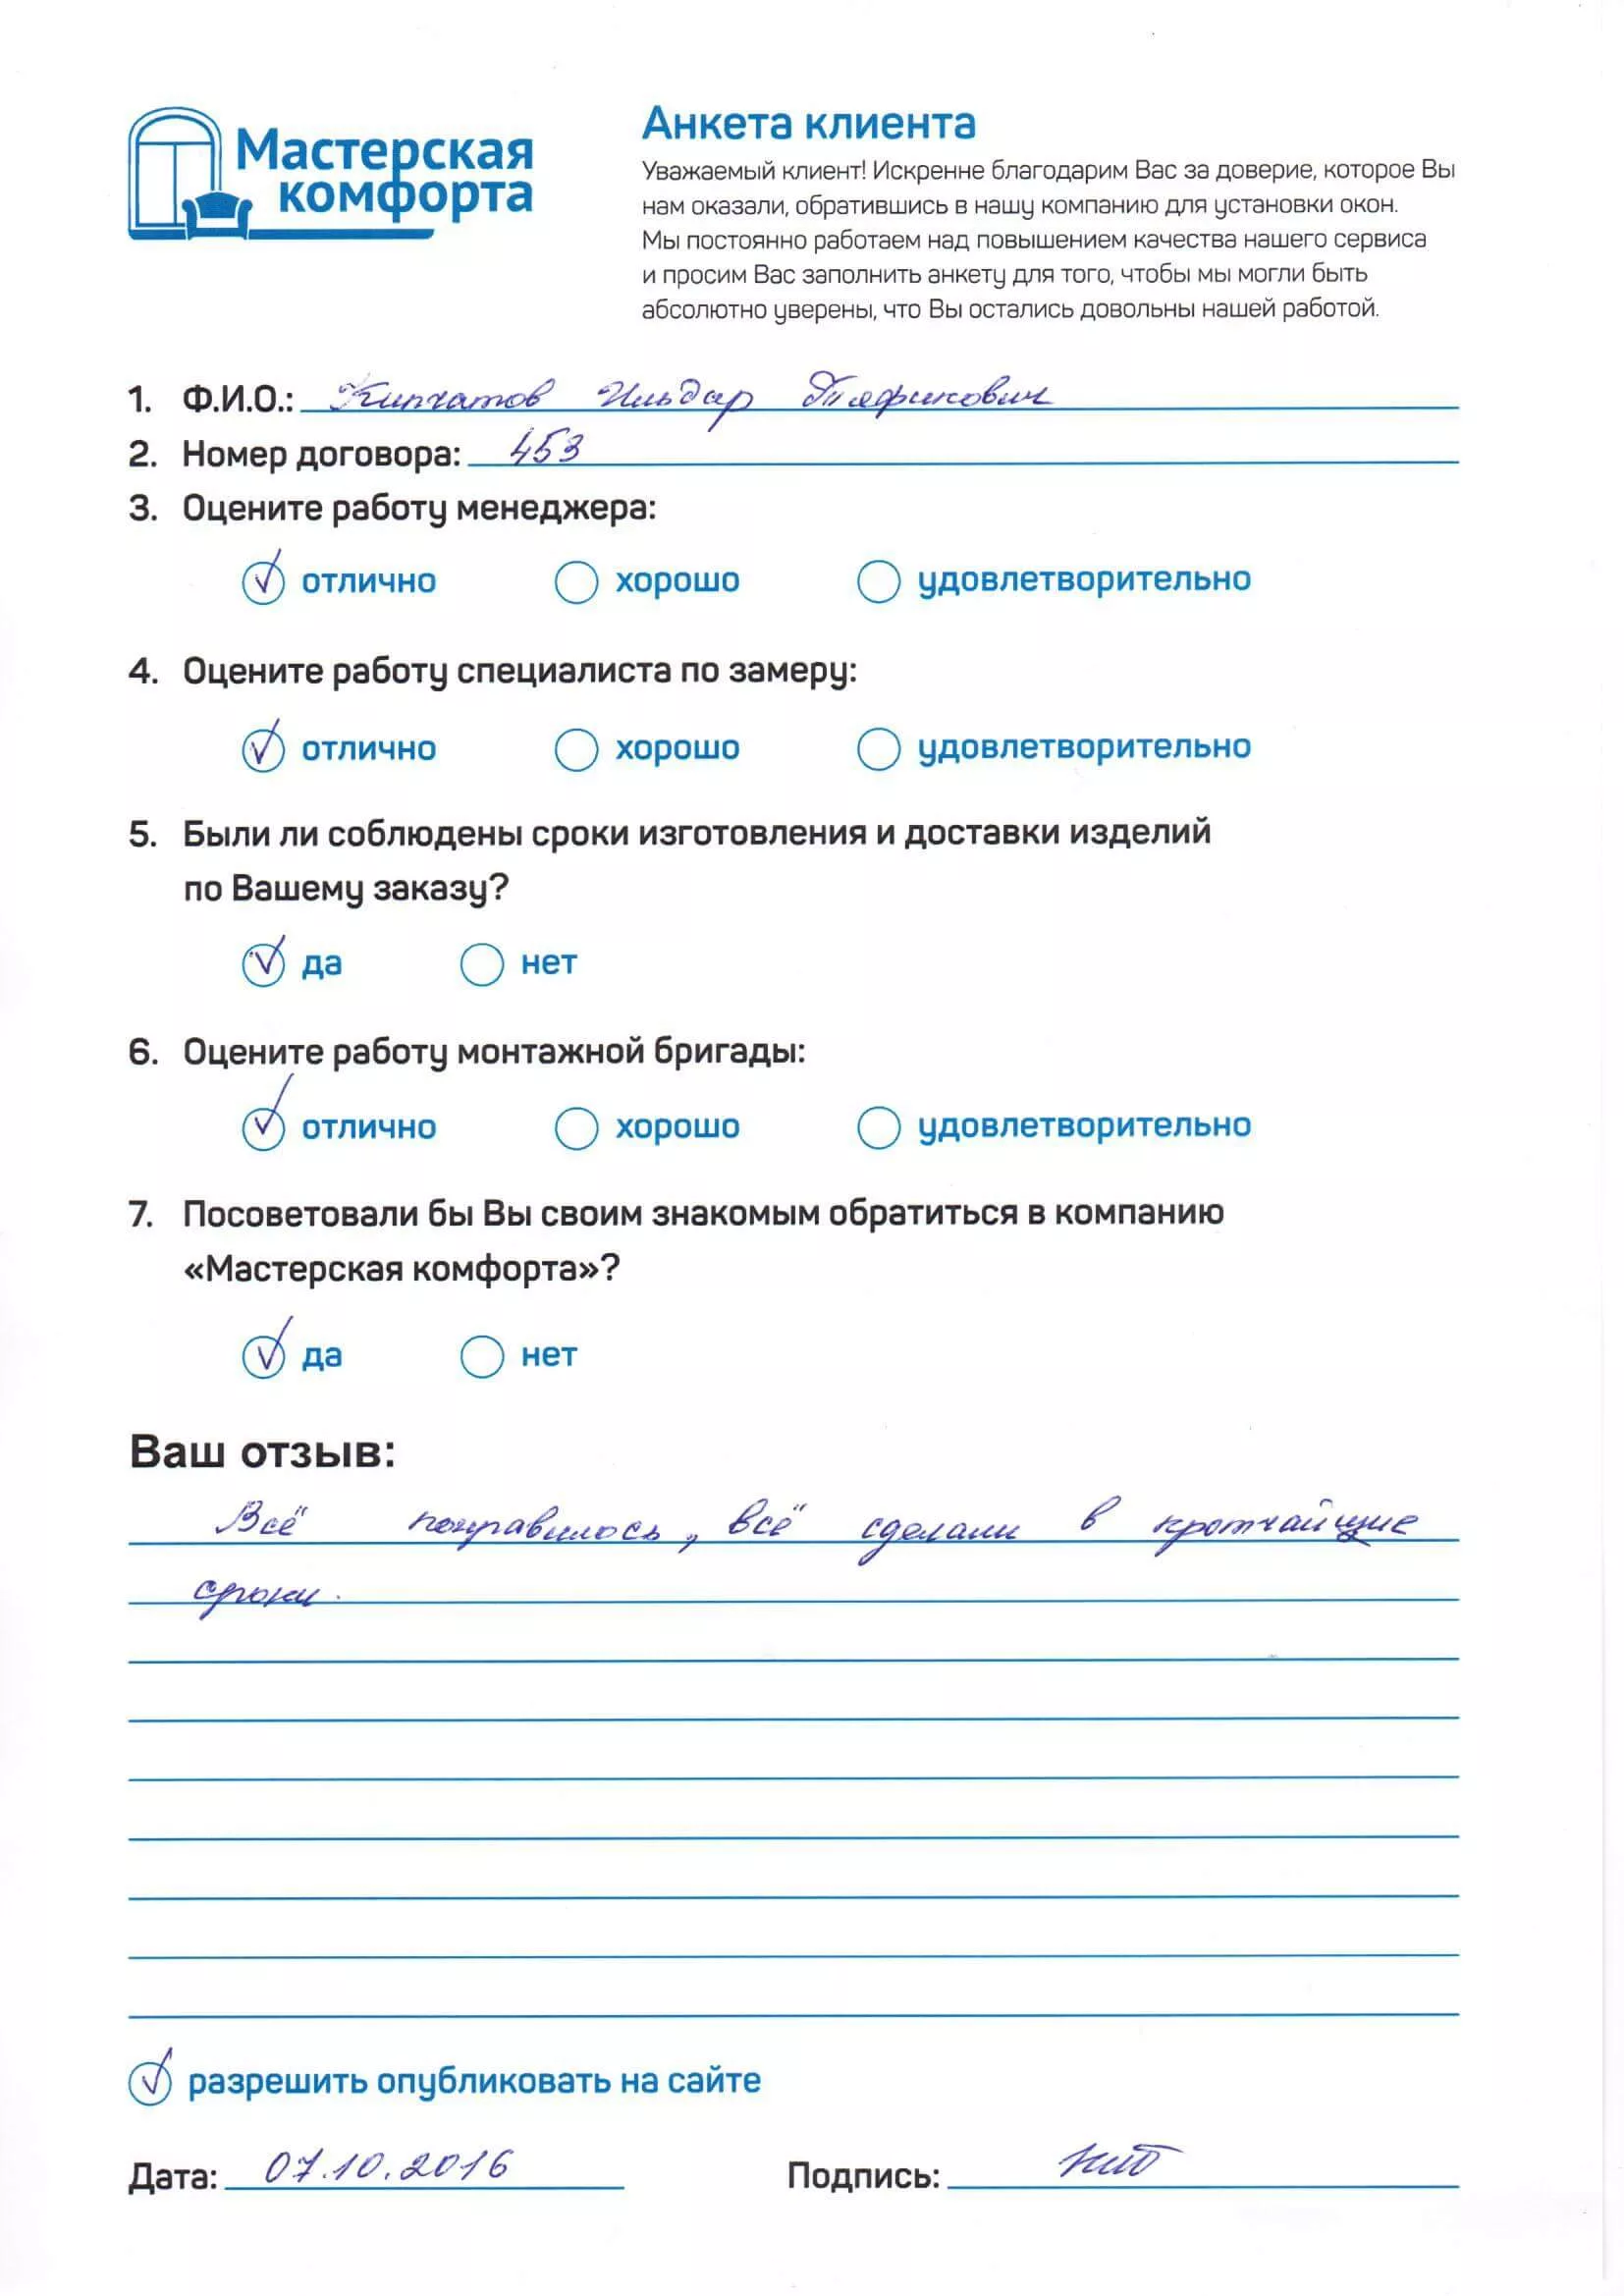 Мастерская
комфорта
Анкета клиента
Уважаемый клиент! Искренне благодарим Вас за доверие, которое Вы
нам оказали, обратившись в нашу компанию для установки окон.
Мы постоянно работаем над повышением качества нашего сервиса
и просим Вас заполнить анкету для того, чтобы мы могли быть
абсолютно уверены, что Вы остались довольны нашей работой.
1. Ф.И.О.: Кипчатов Ильдар Тяфикович
2. Номер договора: 453
3. Оцените работу менеджера:
отлично хорошо удовлетворительно
4. Оцените работу специалиста по замеру:
отлично хорошо удовлетворительно
5. Были ли соблюдены сроки изготовления и доставки изделий
по Вашему заказу?
да нет
6. Оцените работу монтажной бригады:
отлично хорошо удовлетворительно
7. Посоветовали бы Вы своим знакомым обратиться в компанию
«Мастерская комфорта»?
да нет
Ваш отзыв:
Всё понравилось, всё сделали в кротчайщие
сроки.
разрешить опубликовать на сайте
Дата: 07.10.2016 Подпись: